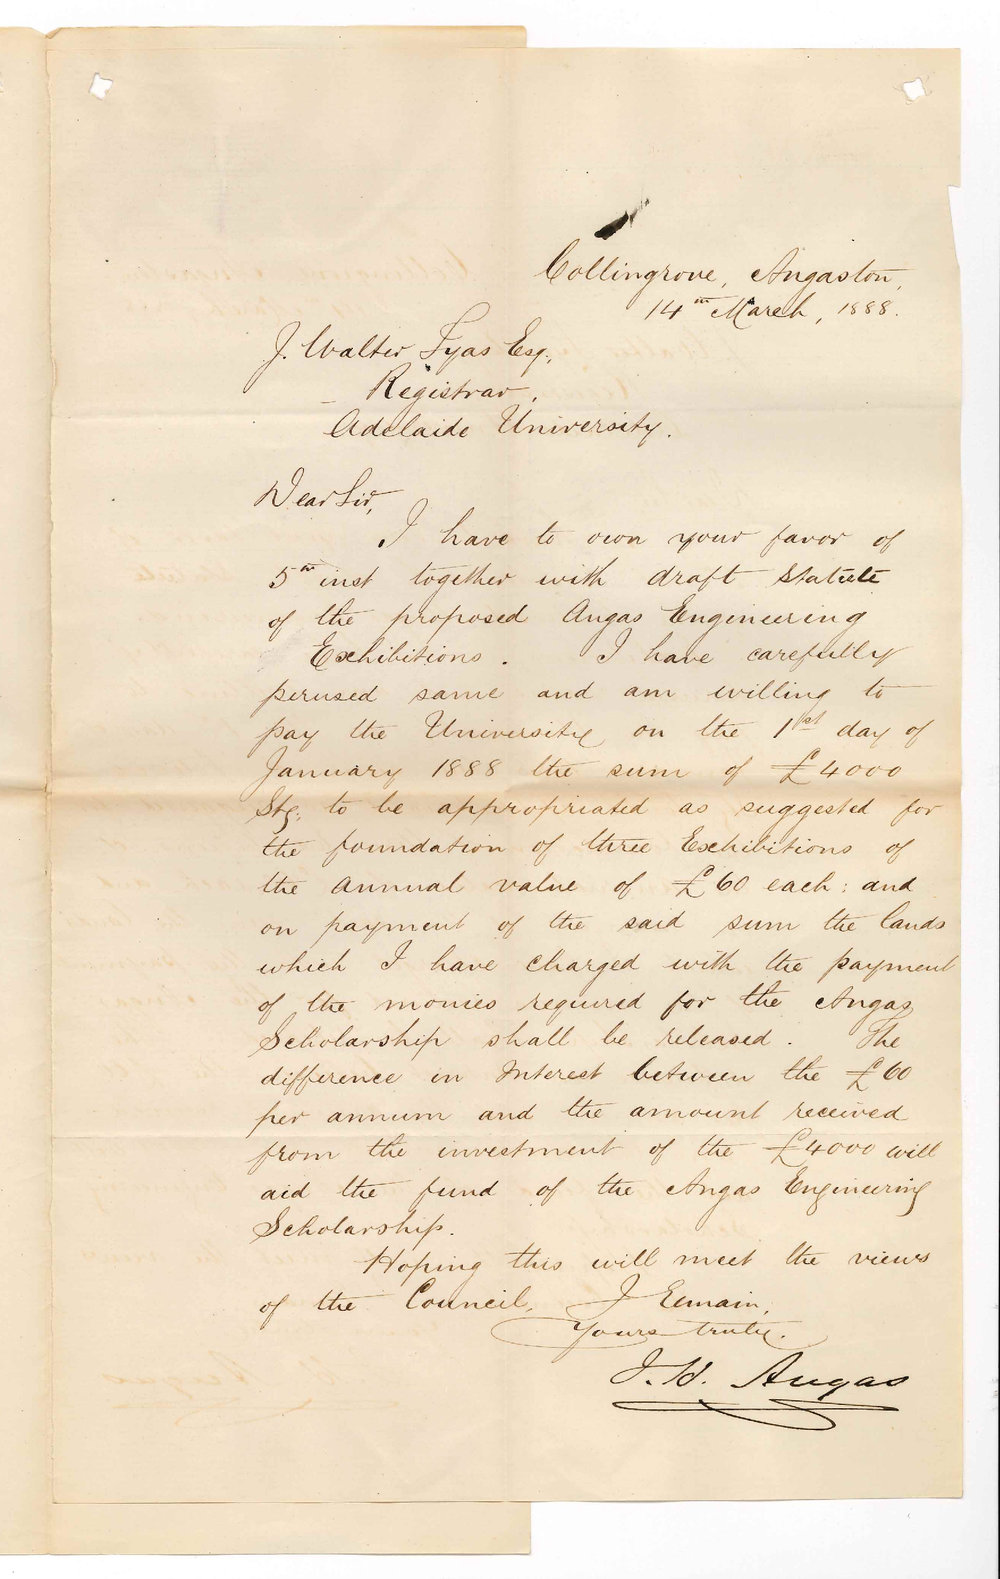 Collingrove, Angaston,
14th March, 1888.
J. Walter Tyas Esq.,
Registrar,
Adelaide University.
Dear Sir,
I have to own your favor of
5th inst together with draft Statute
of the proposed Angas Engineering
Exhibitions. I have carefully
perused same and am willing to
pay the University on the 1st day of
January 1888 the sum of £4000
Stg: to be appropriated as suggested for
the foundation of three Exhibitions of
the annual value of £60 each: and
on payment of the said sum the lands
which I have charged with the payment
of the monies required for the Angas
Scholarship shall be released. The
difference in Interest between the £60
per annum and the amount received
from the investment of the £4000 will
aid the fund of the Angas Engineering
Scholarship.
Hoping this will meet the views
of the Council, I Remain,
Yours truly.
J. H. Angas